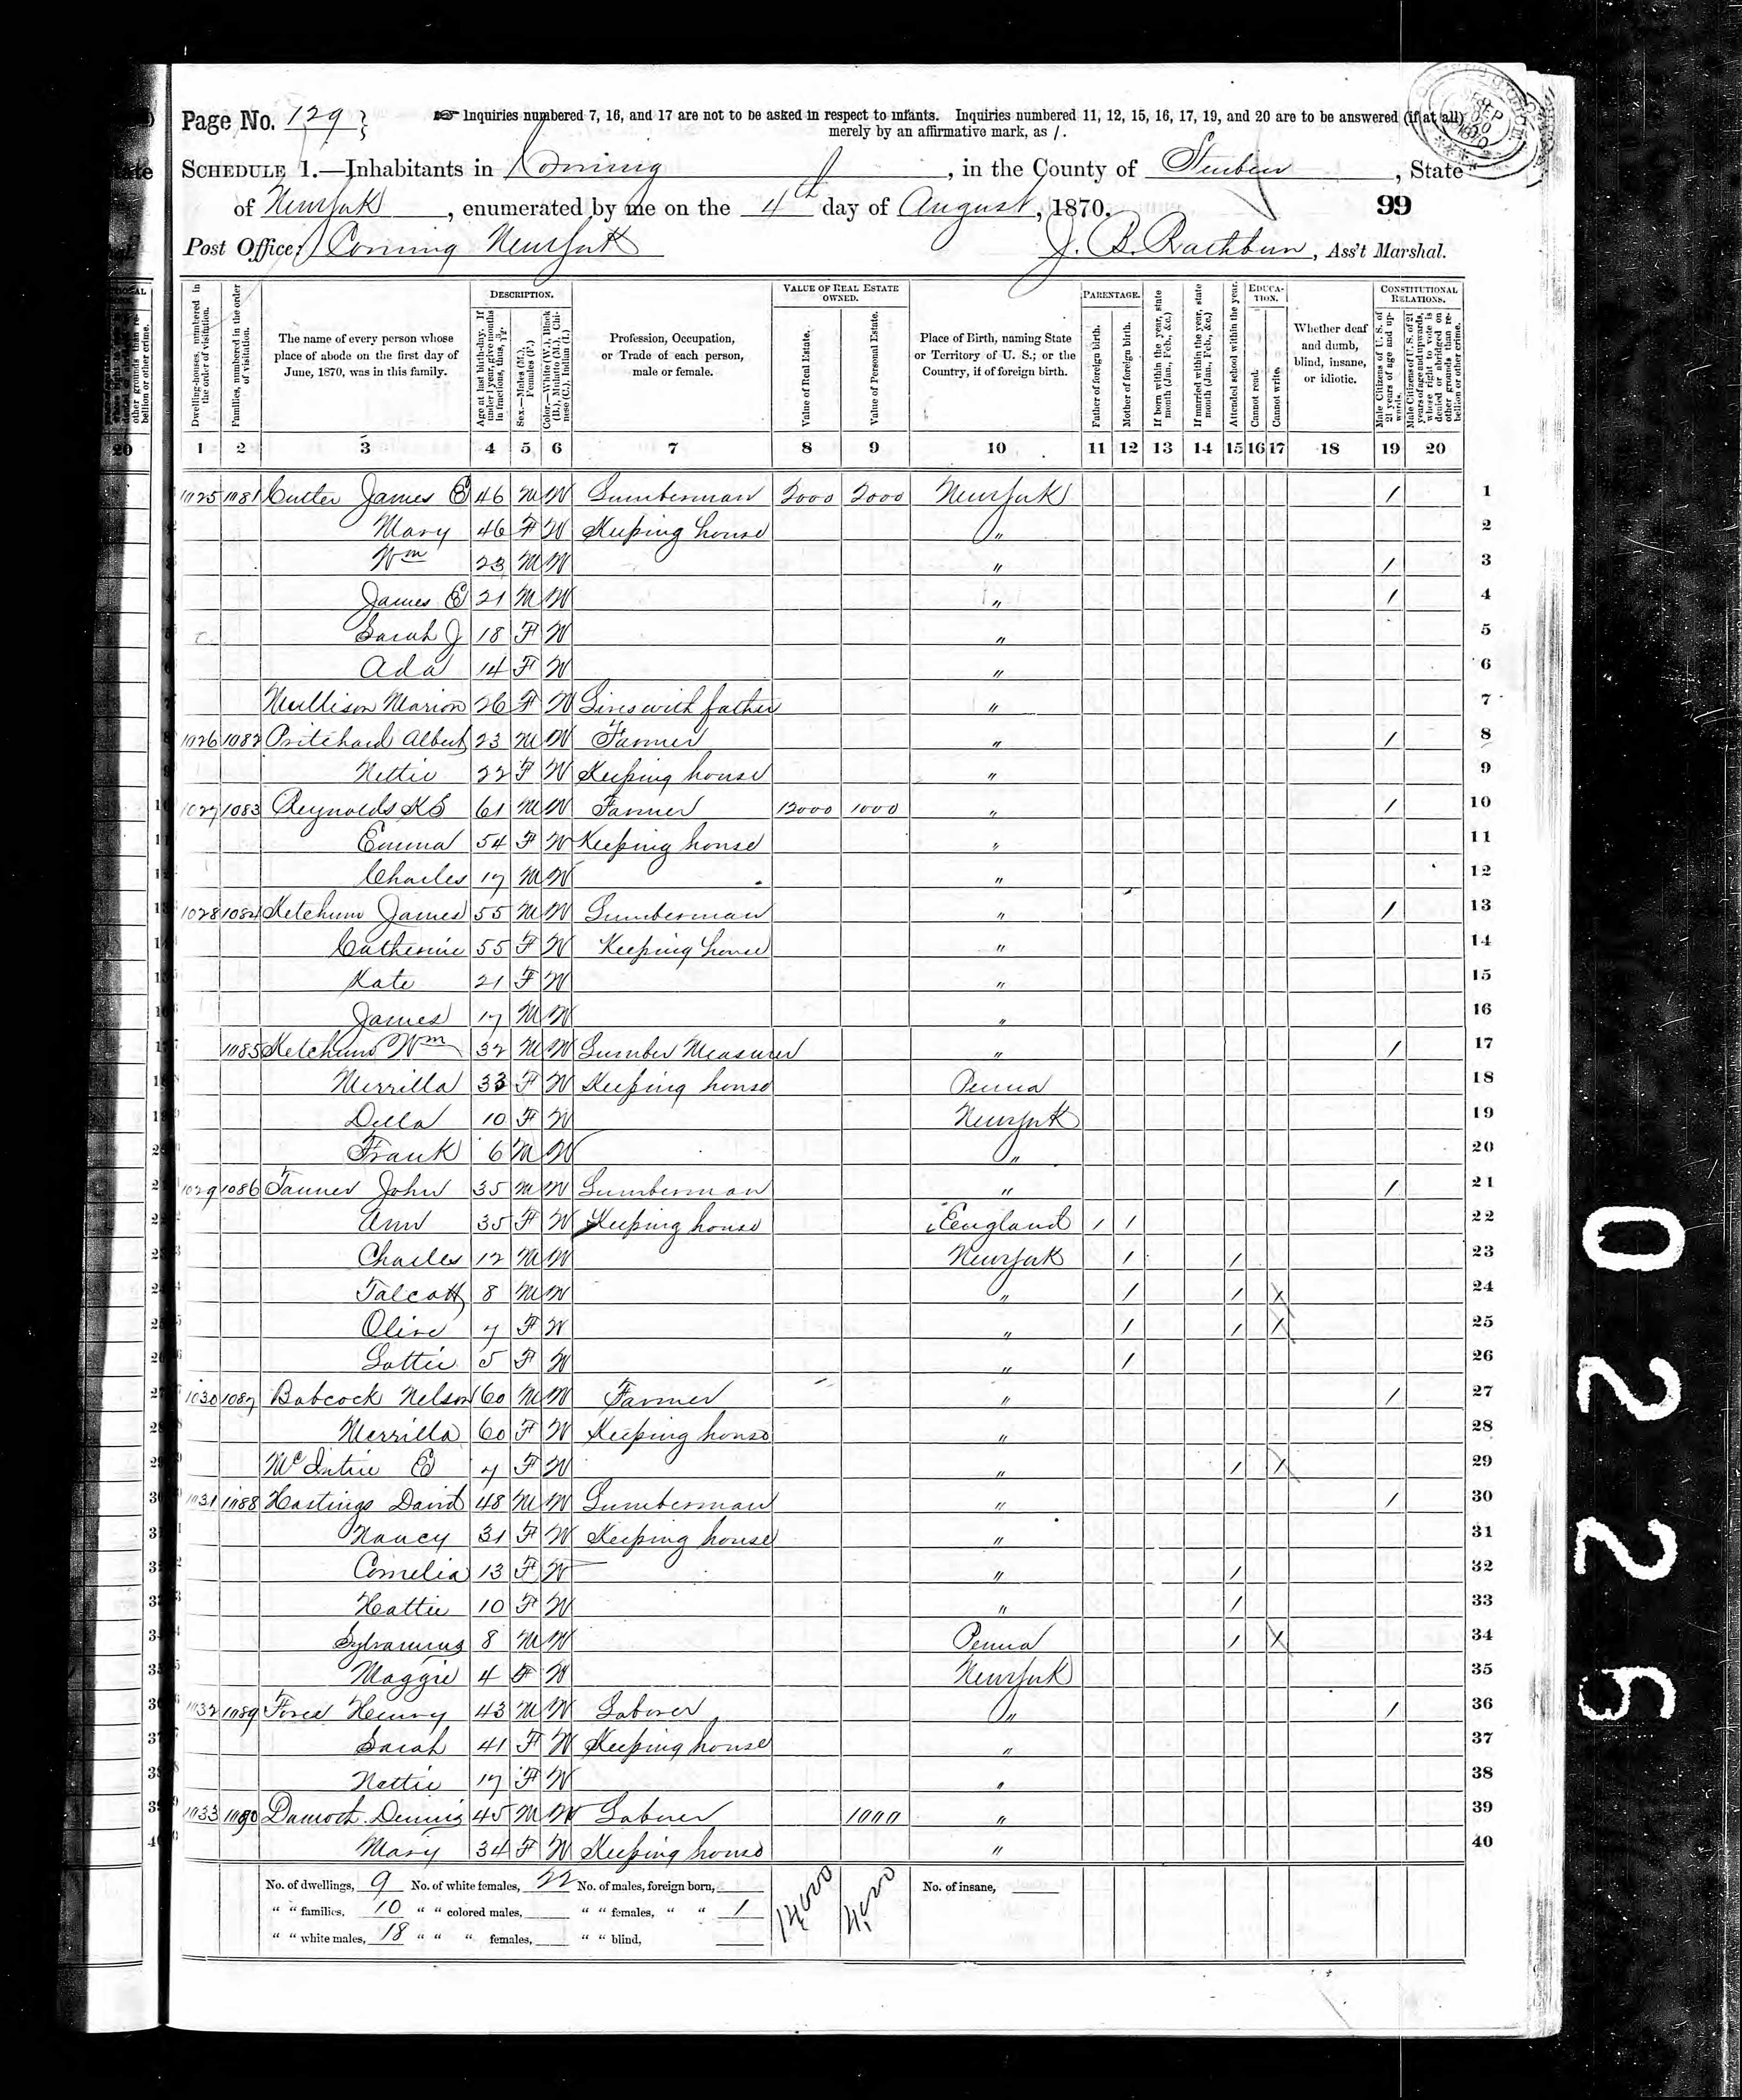 Page No. 129
☞ Inquiries numbered 7, 16, and 17 are not to be asked in respect to infants. Inquiries numbered 11, 12, 15, 16, 17, 19, and 20 are to be answered (if at all)
merely by an affirmative mark, as /.
SCHEDULE 1.—Inhabitants in Corning, in the County of Steuben, State
of New York, enumerated by me on the 4th day of August, 1870.
99
Post Office: Corning New York
J. B. Rathbun, Ass't Marshal.
Dwelling-houses, numbered in the order of visitation.
Families, numbered in the order of visitation.
The name of every person whose place of abode on the first day of June, 1870, was in this family.
DESCRIPTION.
Age at last birth-day. If under 1 year, give months in fractions, thus, 3/12.
Sex.—Males (M.), Females (F.)
Color.—White (W.), Black (B.), Mulatto (M.), Chinese (C.), Indian (I.)
Profession, Occupation, or Trade of each person, male or female.
VALUE OF REAL ESTATE OWNED.
Value of Real Estate.
Value of Personal Estate.
Place of Birth, naming State or Territory of U. S.; or the Country, if of foreign birth.
PARENTAGE.
Father of foreign birth.
Mother of foreign birth.
If born within the year, state month (Jan., Feb., &c.)
If married within the year, state month (Jan., Feb., &c.)
EDUCATION.
Attended school within the year.
Cannot read.
Cannot write.
Whether deaf and dumb, blind, insane, or idiotic.
CONSTITUTIONAL RELATIONS.
Male Citizens of U. S. of 21 years of age and upwards.
Male Citizens of U. S. of 21 years of age and upwards, whose right to vote is denied or abridged on other grounds than rebellion or other crime.
20 1 2 3 4 5 6 7 8 9 10 11 12 13 14 15 16 17 18 19 20
1025 1081 Cutler James E 46 M W Lumberman 2000 2000 New York / 1
Mary 46 F W Keeping house " 2
Wm 23 M W " / 3
James E 21 M W " / 4
Sarah J 18 F W " 5
Ada 14 F W " 6
Mullison Marion 26 F W Lives with father " 7
1026 1082 Pritchard Albert 23 M W Farmer " / 8
Nettie 22 F W Keeping house " 9
1027 1083 Reynolds 61 M W Farmer 12000 1000 " / 10
Emma 54 F W Keeping house " 11
Charles 17 M W " 12
1028 1084 Ketchum James 55 M W Lumberman " / 13
Catherine 55 F W Keeping house " 14
Kate 21 F W " 15
James 17 M W " 16
1085 Ketchum Wm 32 M W Lumber Measurer " / 17
Merrilla 33 F W Keeping house Penna 18
Della 10 F W New York 19
Frank 6 M W " 20
1029 1086 Tanner John 35 M W Lumberman " / 21
Ann 35 F W Keeping house England / / 22
Charles 12 M W New York / / 23
Talcott 8 M W " / / / 24
Olive 7 F W " / / / 25
Lottie 5 F W " / 26
1030 1087 Babcock Nelson 60 M W Farmer " / 27
Merrilla 60 F W Keeping house " 28
McIntire E 7 F W " / / 29
1031 1088 Hastings David 48 M W Lumberman " / 30
Nancy 31 F W Keeping house " 31
Cornelia 13 F W " / 32
Hattie 10 F W " / 33
Sylvanus 8 M W Penna / X 34
Maggie 4 F W New York 35
1032 1089 Force Henry 43 M W Laborer " / 36
Sarah 41 F W Keeping house " 37
Nettie 17 F W " 38
1033 1090 Dennis 45 M W Laborer 1000 " 39
Mary 34 F W Keeping house " 40
No. of dwellings, 9 No. of white females, 22 No. of males, foreign born, No. of insane,
" " families, 10 " " colored males, " " females, " " 1
" " white males, 18 " " " females, " " blind,
14000 4000
0226